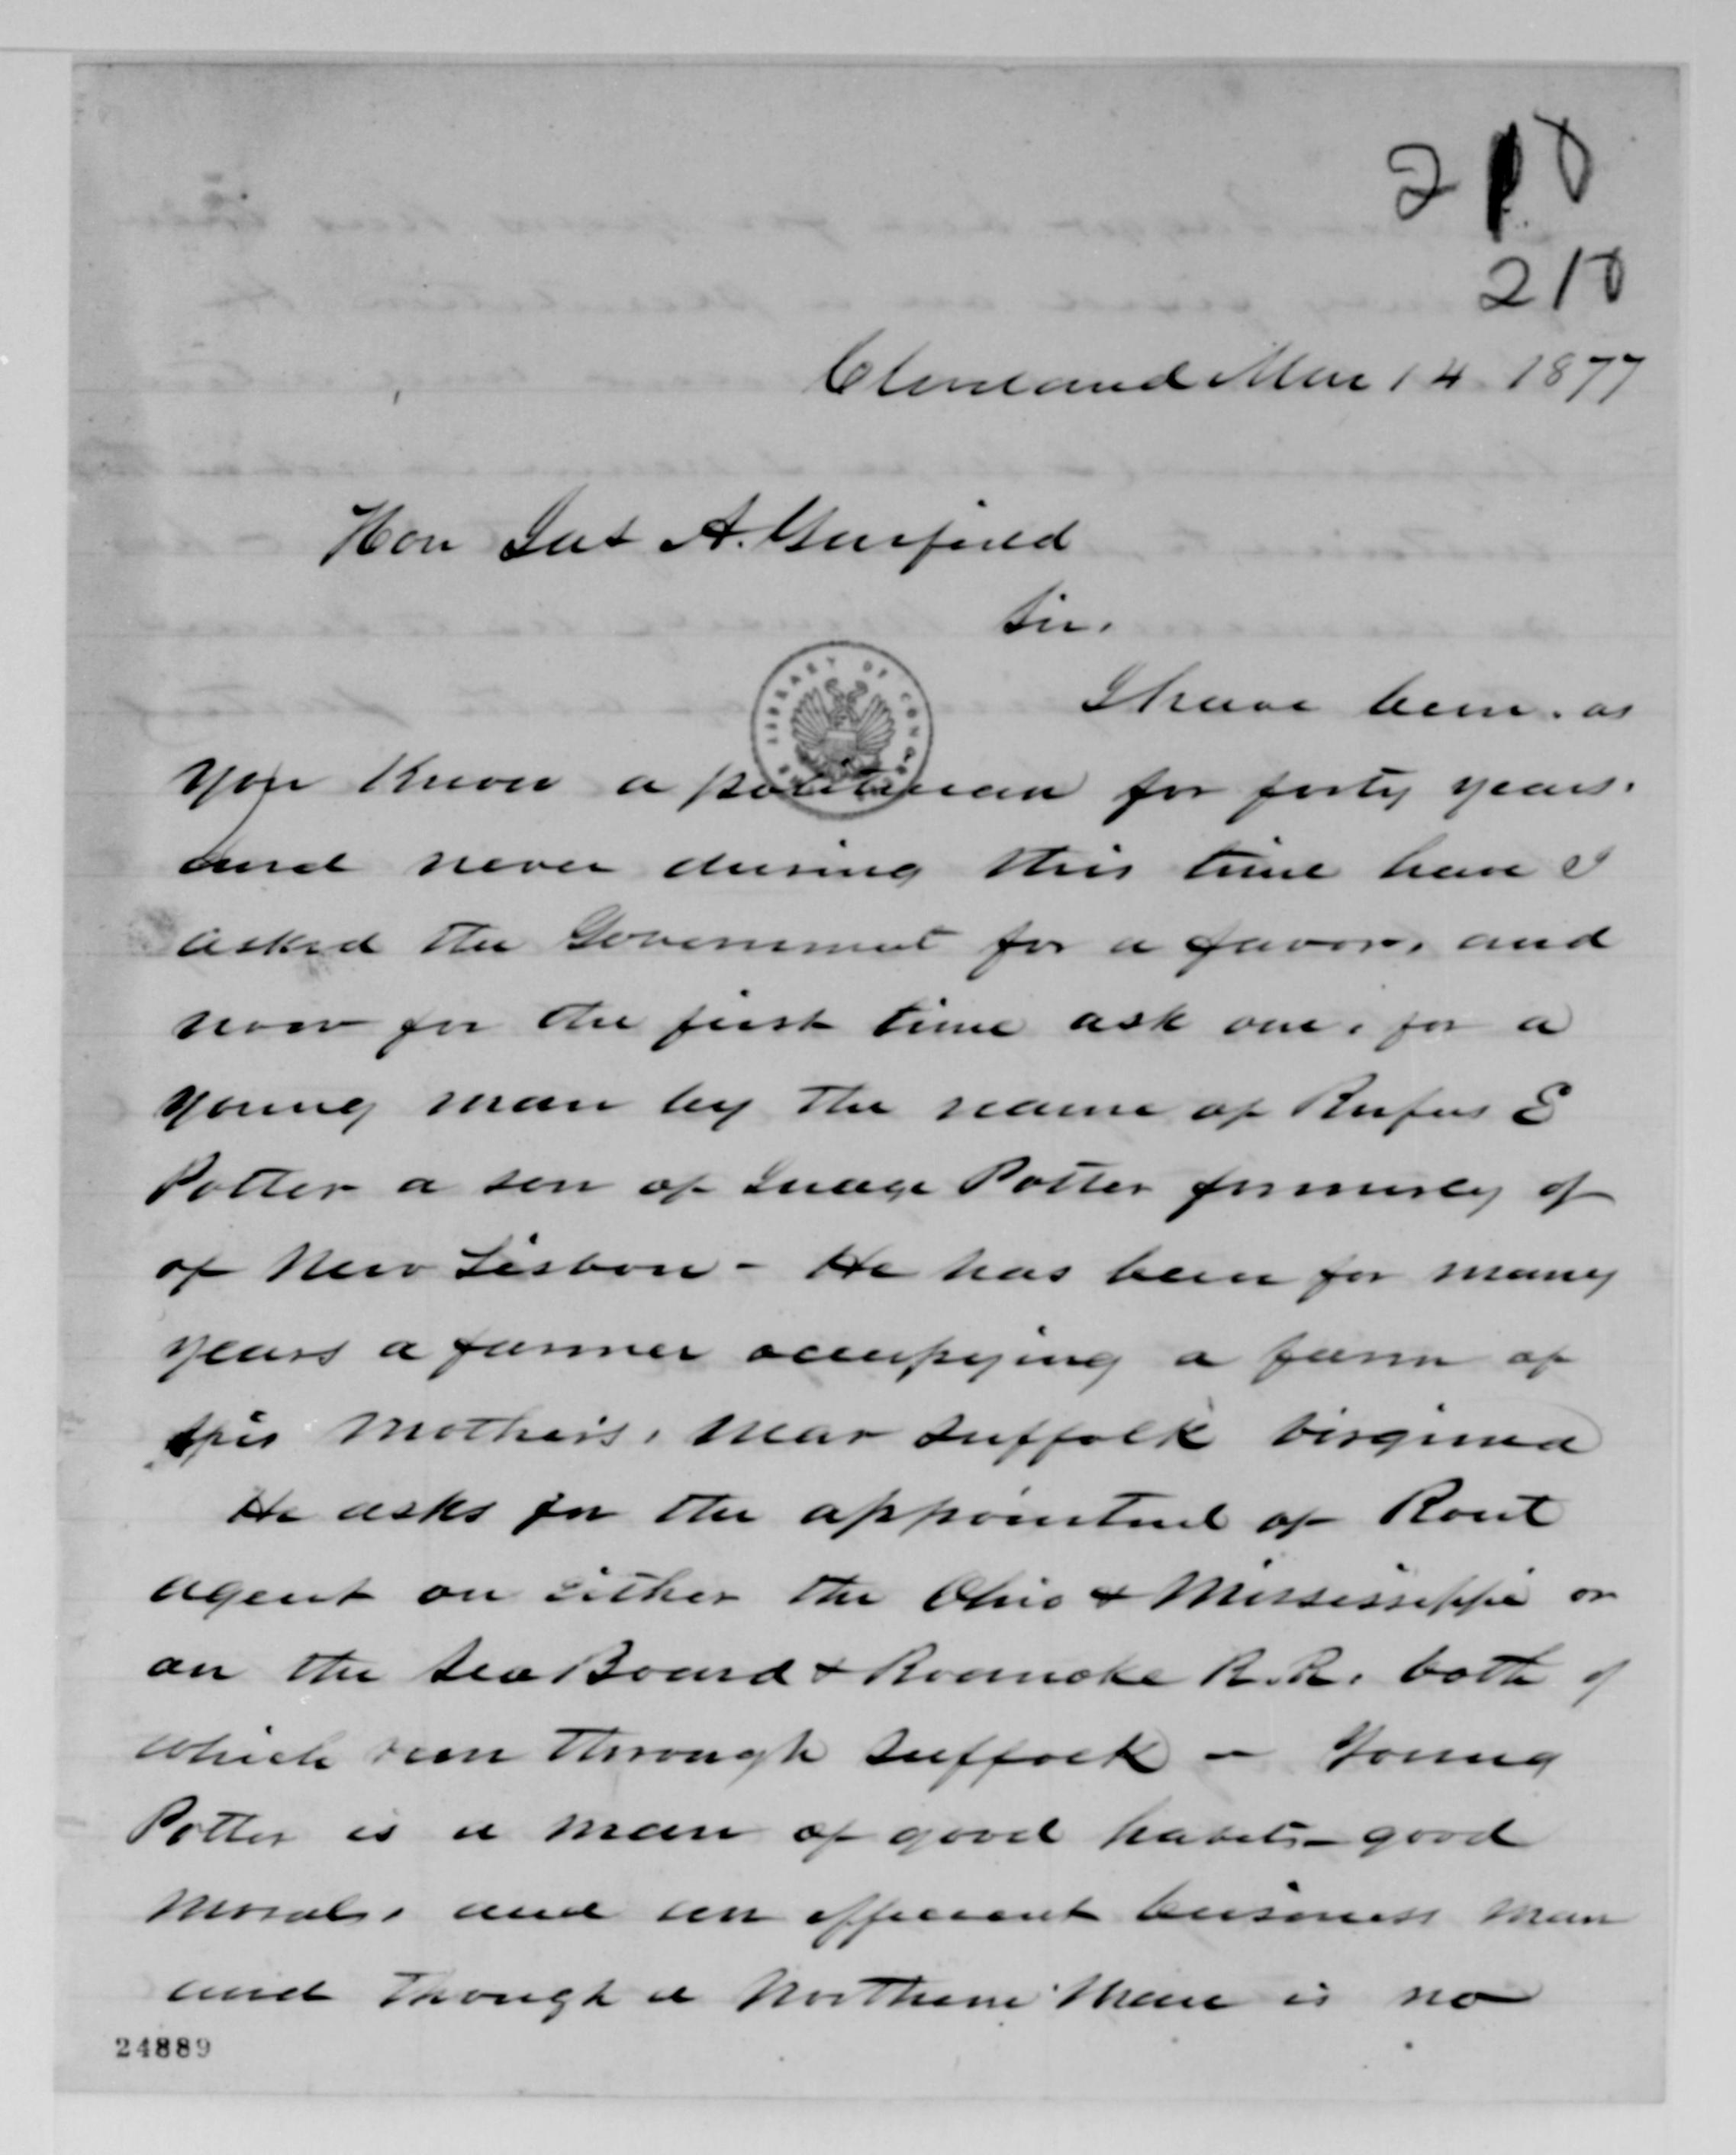 210
210
Cleveland Mar 14 1877
Hon Jas A. Garfield
Sir.
I have been. as
you know a politician for forty years.
and never during this time have I
asked the Government for a favor, and
now for the first time ask one, for a
young man by the name of Rufus E
Potter a son of Judge Potter formerly of
of New Lisbon - He has been for many
years a farmer occupying a farm of
his Mothers, near Suffolk Virginia
He asks for the appointmet of Rout
agent on either the Ohio & Mississippi or
on the Sea Board & Roanoke R.R. both of
which run through Suffolk - Young
Potter is a man of good habits - good
morals, and an efficient business man
and though a Northern Man is no
LIBRARY OF CONGRESS
24889